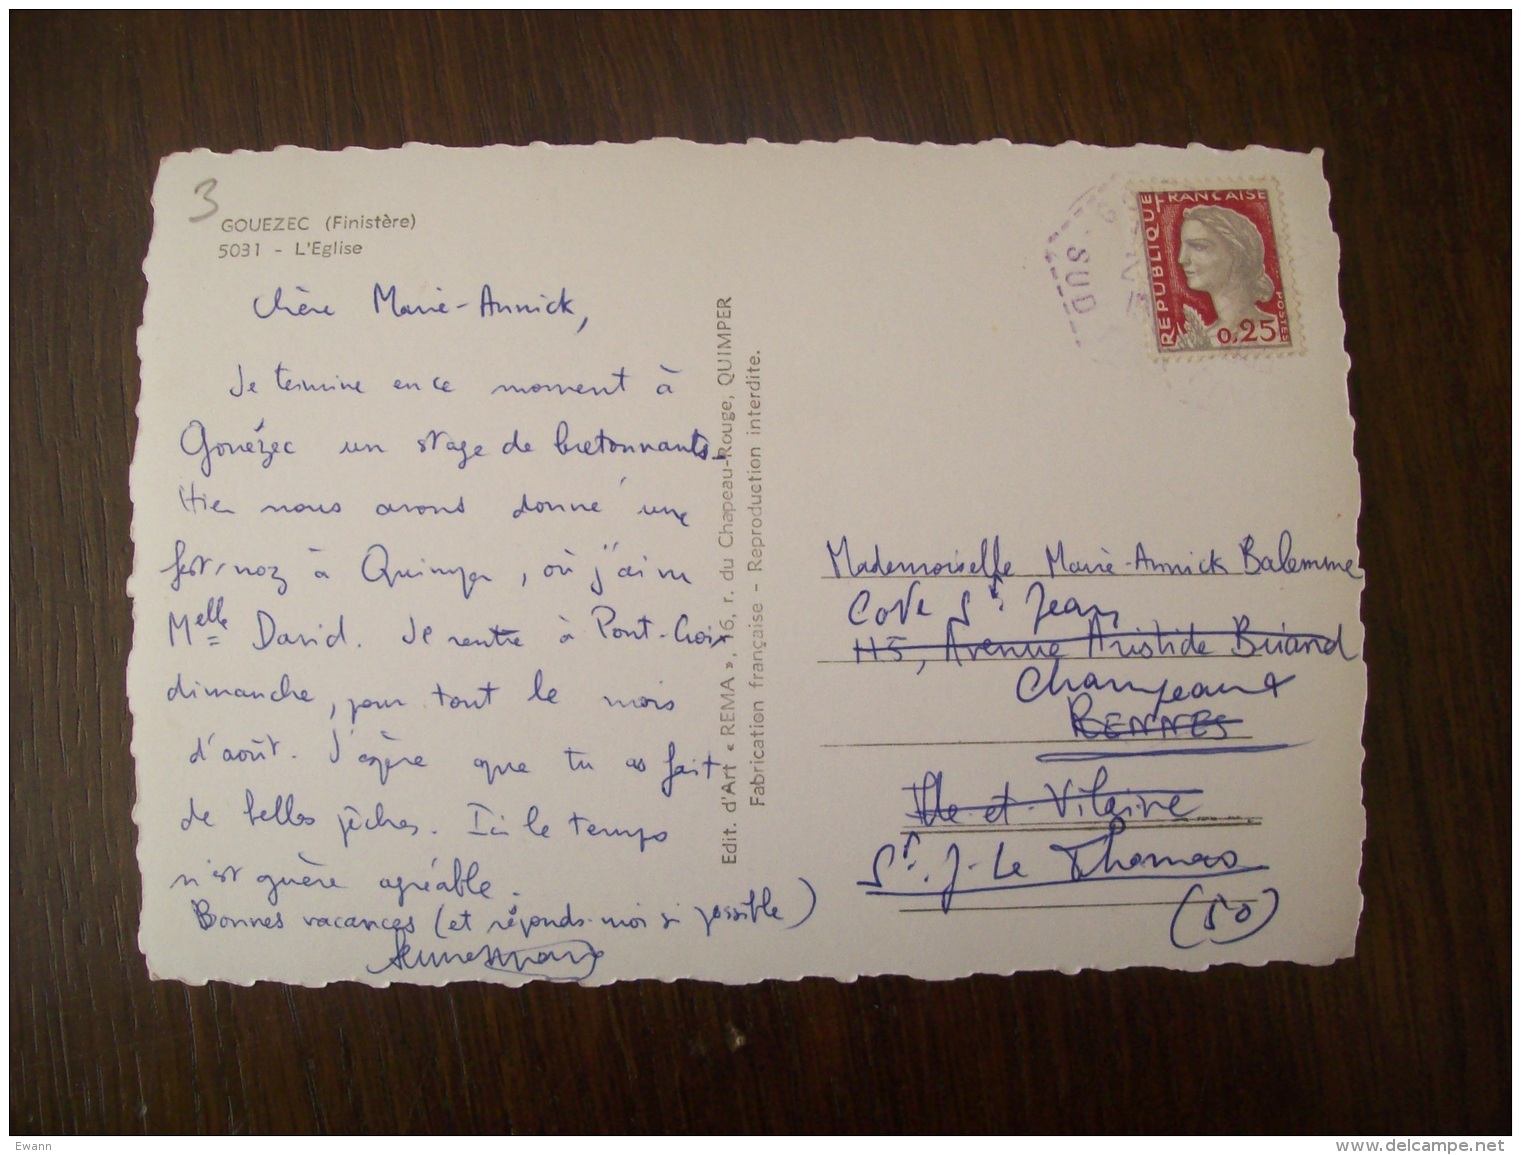 3
GOUEZEC (Finistère)
5031 - L'Eglise
Chère Marie-Annick,
Je termine en ce moment à
Gouézec un stage de bretonnants.
Hier nous avons donné une
fest-noz à Quimper, où j'ai vu
Melle David. Je rentre à Pont-Croix
dimanche, pour tout le mois
d'août. J'espère que tu as fait
de belles pêches. Ici le temps
n'est guère agréable.
Bonnes vacances (et réponds-moi si possible)
Edit. d'Art « REMA », 16, r. du Chapeau-Rouge, QUIMPER
Fabrication française - Reproduction interdite.
SUD
REPUBLIQUE FRANÇAISE
POSTES
0,25
Mademoiselle Marie-Annick Balemme
St. Jean
115, Avenue Aristide Briand
Champeaux
RENNES
Ille-et-Vilaine
St. J. Le Thomas
(50)
Ewann
www.delcampe.net